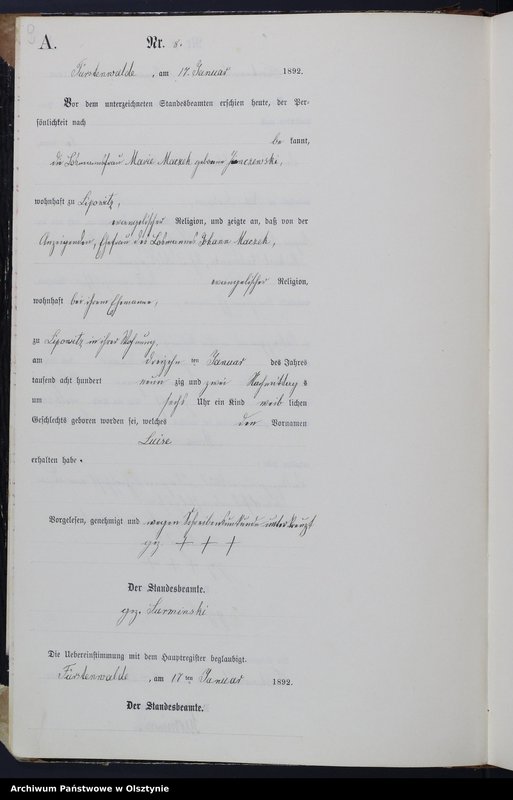 A. Nr. 8.
Fürstenwalde, am 17. Januar 1892.
Vor dem unterzeichneten Standesbeamten erschien heute, der Per-
sönlichkeit nach
be kannt,
die Losmannsfrau Marie Maczek geborene Janczewski,
wohnhaft zu Lipowitz,
evangelischer Religion, und zeigte an, daß von der
Anzeigenden, Ehefrau des Losmanns Johann Maczek,
evangelischer Religion,
wohnhaft bei ihrem Ehemanne,
zu Lipowitz in ihrer Wohnung,
am dreizehn ten Januar des Jahres
tausend acht hundert neun zig und zwei Nachmittags
um sechs Uhr ein Kind weib lichen
Geschlechts geboren worden sei, welches den Vornamen
Luise
erhalten habe.
Vorgelesen, genehmigt und wegen Schreibensunkunde unterkreuzt
gez. + + +
Der Standesbeamte.
gez. Surminski
Die Uebereinstimmung mit dem Hauptregister beglaubigt.
Fürstenwalde, am 17ten Januar 1892.
Der Standesbeamte.
Archiwum Państwowe w Olsztynie